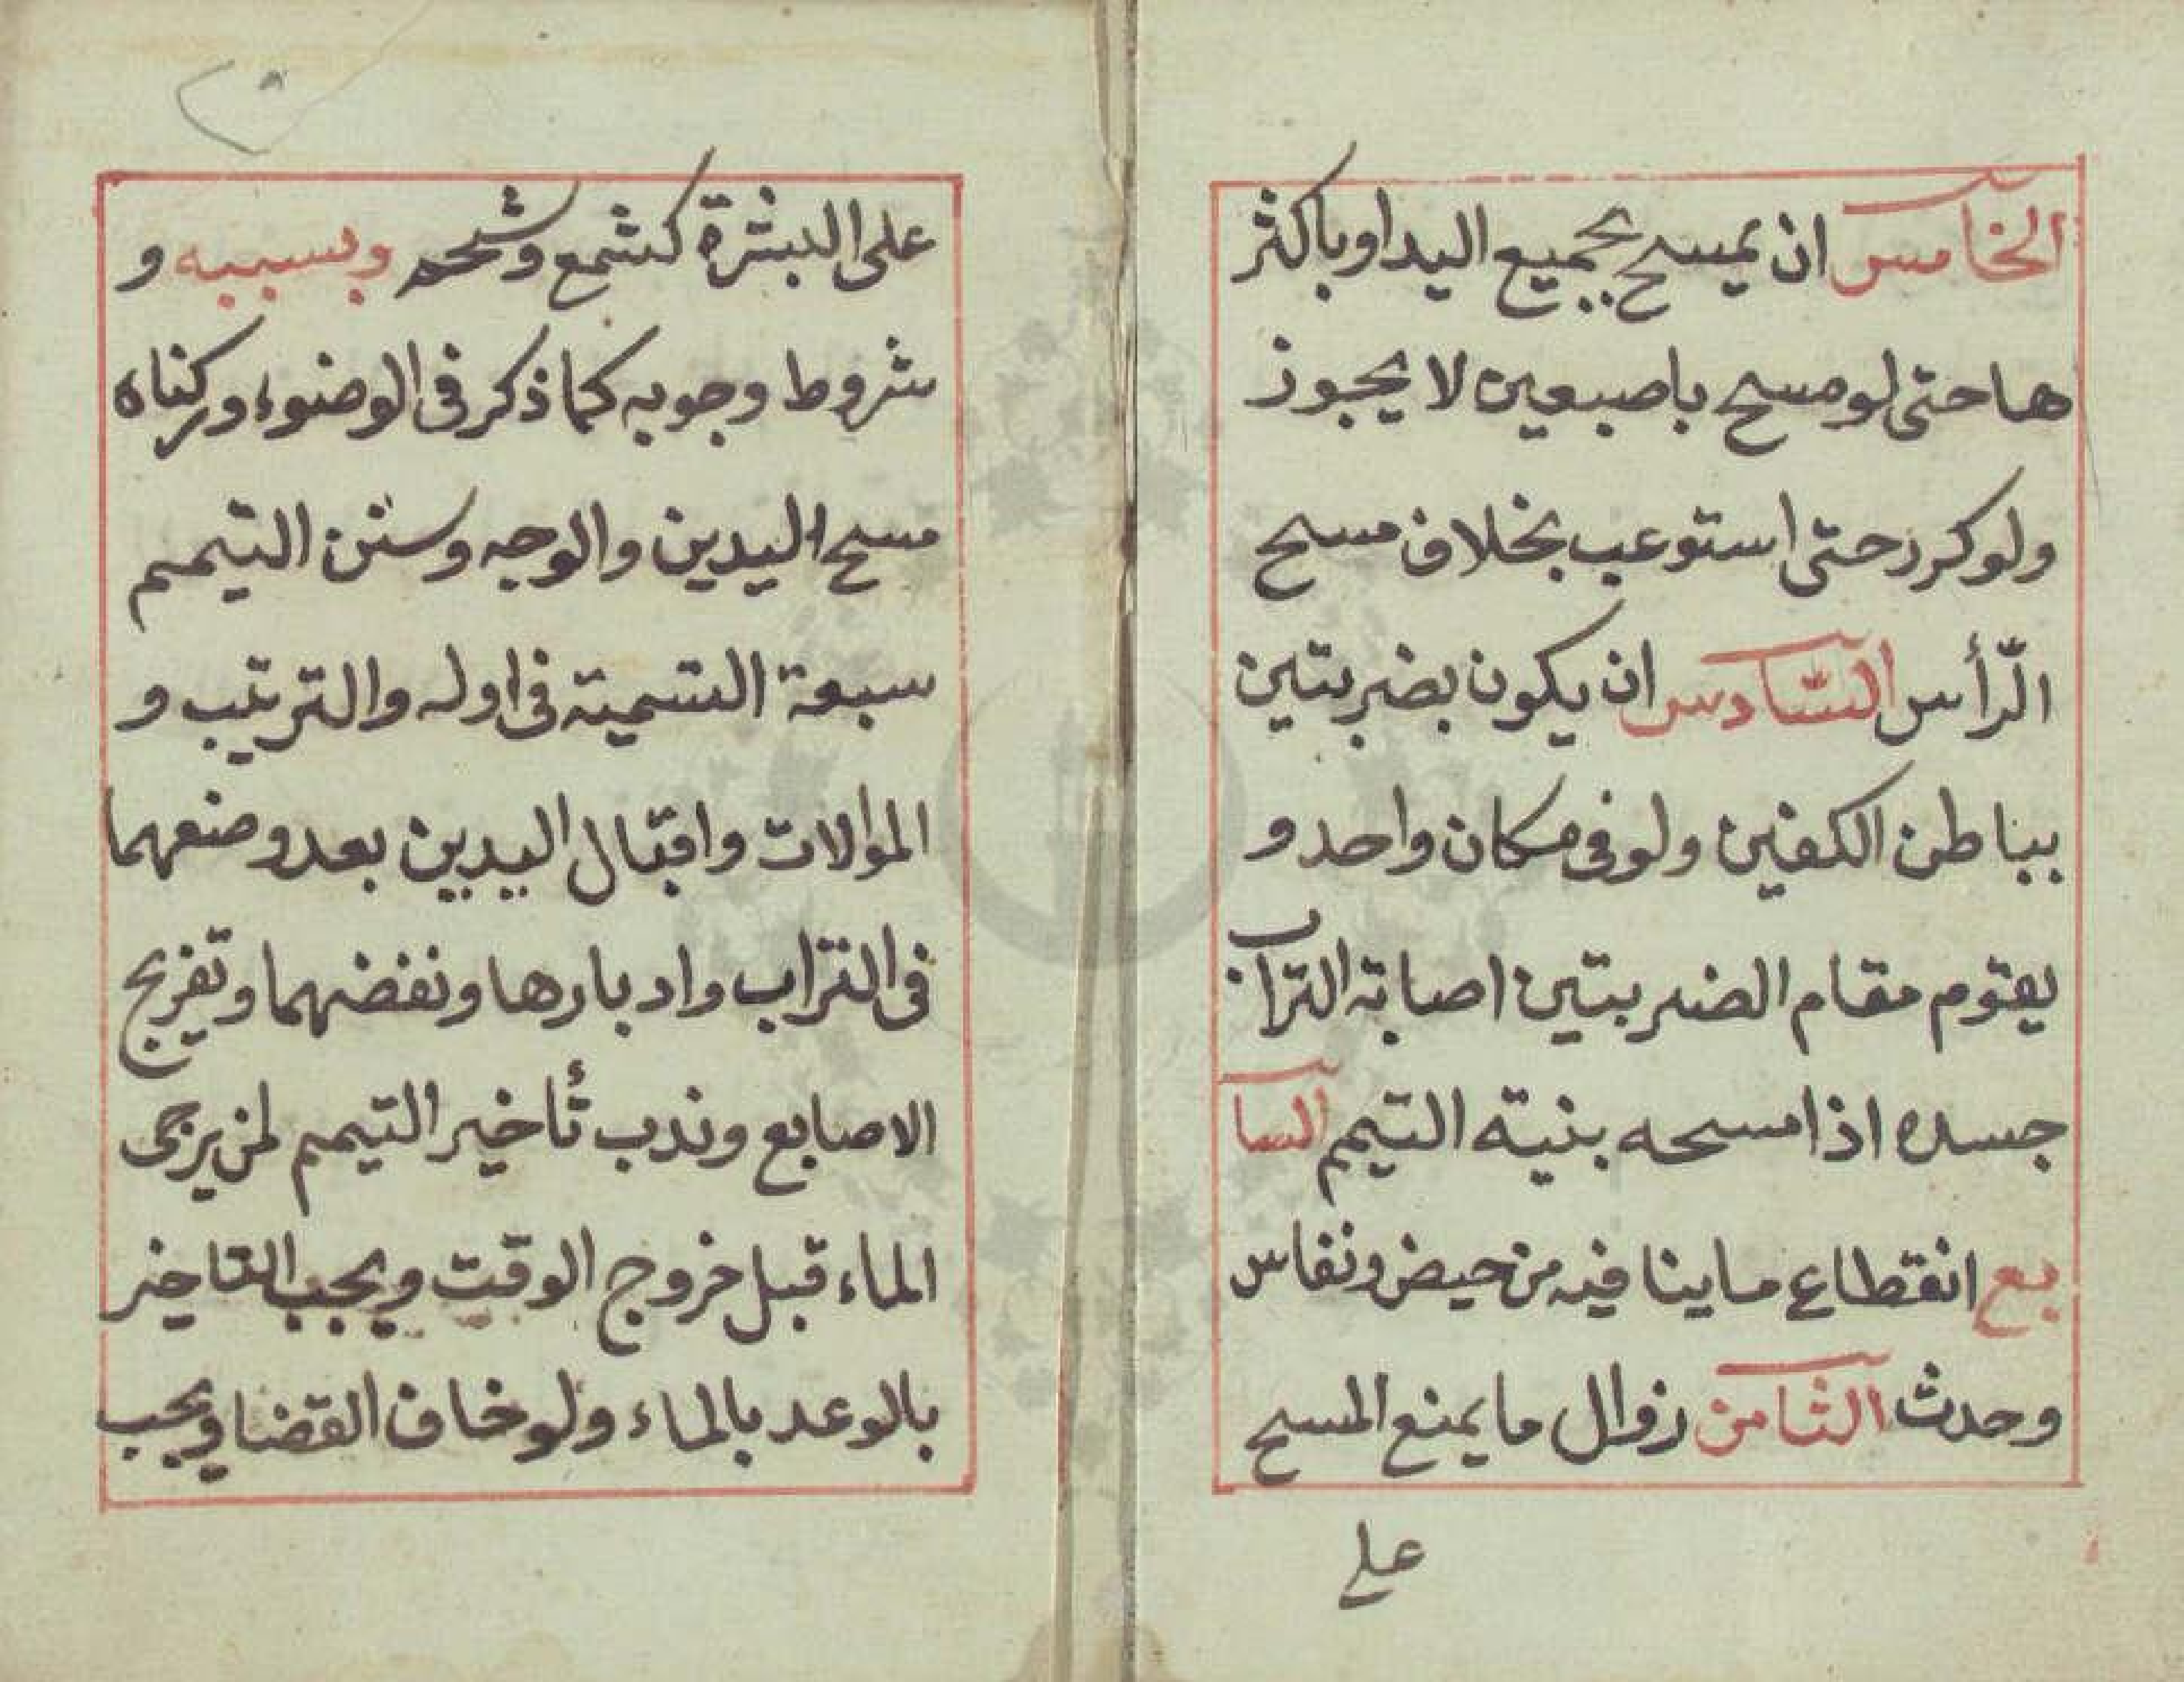 الخامس ان يمسح بجميع اليد او باكثر
ها حتى لو مسح باصبعين لا يجوز
ولو كرر حتى استوعب بخلاف مسح
الرّأس السّادس ان يكون بضربتين
بباطن الكفين ولو فى مكان واحد و
يقوم مقام الضربتين اصابة التراب
جسده اذا مسحه بنية التيمم السا
بع انقطاع ما ينافيه من حيض ونفاس
وحدث الثامن زوال ما يمنع المسح
على
على البشرة كشمع وشحم وبسببه و
شروط وجوبه كما ذكر فى الوضوء وركناه
مسح اليدين والوجه وسنن التيمم
سبعة التسمية فى اوله والترتيب و
الموالات واقبال اليدين بعد وضعهما
فى التراب وادبارها ونفضهما وتفريج
الاصابع وندب تأخير التيمم لمن يرجى
الماء قبل خروج الوقت ويجب التاخير
بالوعد بالماء ولو خاف القضا ويجب